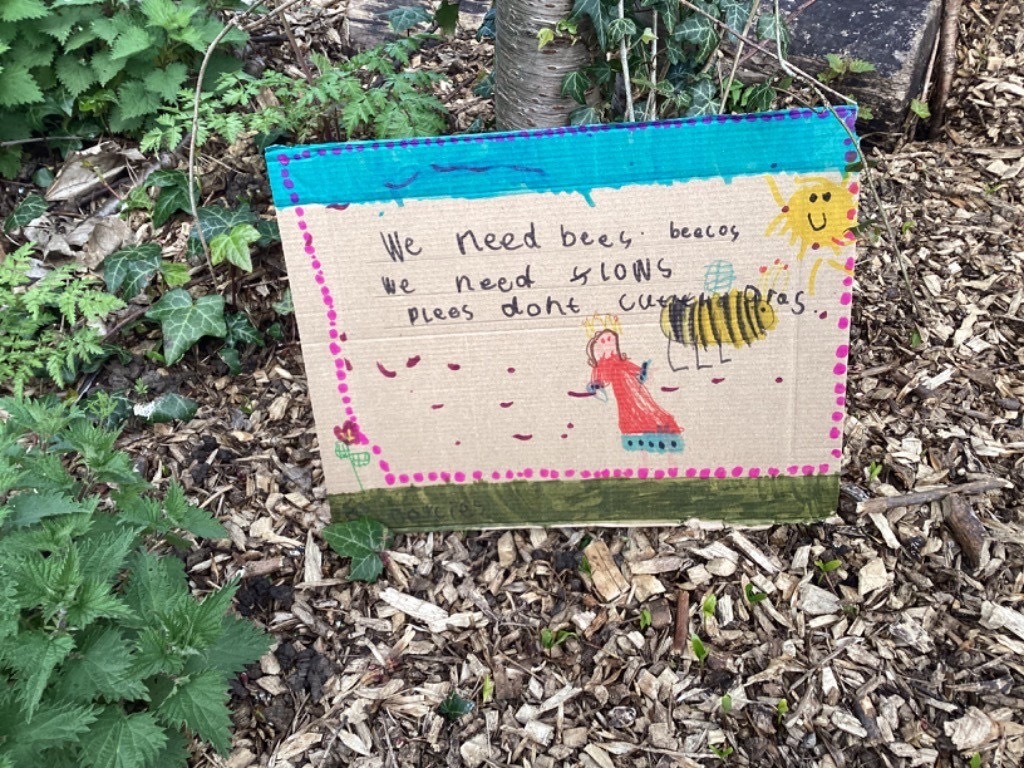 We need bees. becos
we need flows
plees dont cut the gras.